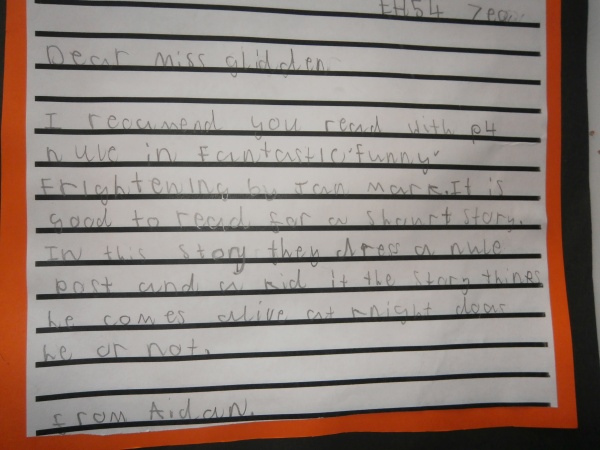 EH54 7
Dear miss glidden.
I recumend you read with p4
nule in Fantastic, funny,
Frightening by Jan Mark. It is
good to read for a shourt story.
In this story they dress a nule
post and a kid it the story thines
he comes alive at knight doas
he or not.
From Aidan.